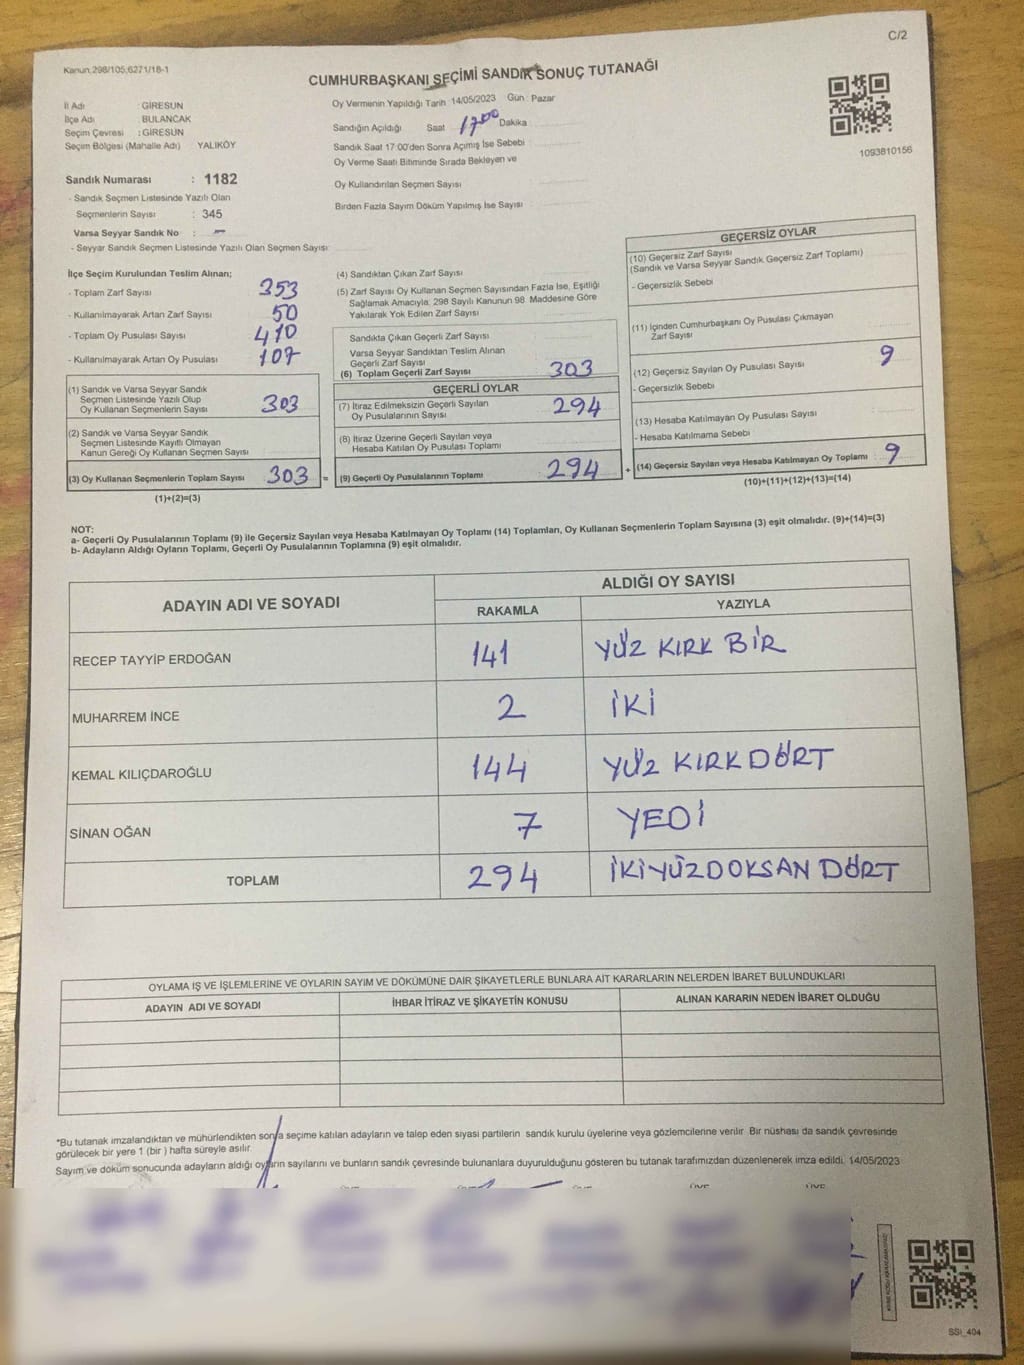 C/2
Kanun.298/105;6271/18-1
CUMHURBAŞKANI SEÇİMİ SANDIK SONUÇ TUTANAĞI
İl Adı GİRESUN
İlçe Adı BULANCAK
Seçim Çevresi : GİRESUN
Seçim Bölgesi (Mahalle Adı) YALIKÖY
Oy Vermenin Yapıldığı Tarih 14/05/2023 Gün : Pazar
Sandığın Açıldığı Saat 17 00 Dakika
Sandık Saat 17:00'den Sonra Açımış İse Sebebi
Oy Verme Saati Bitiminde Sırada Bekleyen ve
Oy Kullandırılan Seçmen Sayısı
Birden Fazla Sayım Döküm Yapılmış İse Sayısı
1093810156
Sandık Numarası : 1182
- Sandık Seçmen Listesinde Yazılı Olan
Seçmenlerin Sayısı : 345
Varsa Seyyar Sandık No : -
- Seyyar Sandık Seçmen Listesinde Yazılı Olan Seçmen Sayısı:
İlçe Seçim Kurulundan Teslim Alınan;
- Toplam Zarf Sayısı 353
- Kullanılmayarak Artan Zarf Sayısı 50
- Toplam Oy Pusulası Sayısı 410
- Kullanılmayarak Artan Oy Pusulası 107
(1) Sandık ve Varsa Seyyar Sandık
Seçmen Listesinde Yazılı Olup
Oy Kullanan Seçmenlerin Sayısı 303
(2) Sandık ve Varsa Seyyar Sandık
Seçmen Listesinde Kayıtlı Olmayan
Kanun Gereği Oy Kullanan Seçmen Sayısı
(3) Oy Kullanan Seçmenlerin Toplam Sayısı 303 =
(1)+(2)=(3)
(4) Sandıktan Çıkan Zarf Sayısı
(5) Zarf Sayısı Oy Kullanan Seçmen Sayısından Fazla İse, Eşitliği
Sağlamak Amacıyla; 298 Sayılı Kanunun 98. Maddesine Göre
Yakılarak Yok Edilen Zarf Sayısı
Sandıkta Çıkan Geçerli Zarf Sayısı
Varsa Seyyar Sandıktan Teslim Alınan
Geçerli Zarf Sayısı
(6) Toplam Geçerli Zarf Sayısı 303
GEÇERLİ OYLAR
(7) İtiraz Edilmeksizin Geçerli Sayılan
Oy Pusulalarının Sayısı 294
(8) İtiraz Üzerine Geçerli Sayılan veya
Hesaba Katılan Oy Pusulası Toplamı
(9) Geçerli Oy Pusulalarının Toplamı 294 +
GEÇERSİZ OYLAR
(10) Geçersiz Zarf Sayısı
(Sandık ve Varsa Seyyar Sandık Geçersiz Zarf Toplamı)
- Geçersizlik Sebebi
(11) İçinden Cumhurbaşkanı Oy Pusulası Çıkmayan
Zarf Sayısı
(12) Geçersiz Sayılan Oy Pusulası Sayısı 9
- Geçersizlik Sebebi
(13) Hesaba Katılmayan Oy Pusulası Sayısı
- Hesaba Katılmama Sebebi
(14) Geçersiz Sayılan veya Hesaba Katılmayan Oy Toplamı : 9
(10)+(11)+(12)+(13)=(14)
NOT:
a- Geçerli Oy Pusulalarının Toplamı (9) ile Geçersiz Sayılan veya Hesaba Katılmayan Oy Toplamı (14) Toplamları, Oy Kullanan Seçmenlerin Toplam Sayısına (3) eşit olmalıdır. (9)+(14)=(3)
b- Adayların Aldığı Oyların Toplamı, Geçerli Oy Pusulalarının Toplamına (9) eşit olmalıdır.
ADAYIN ADI VE SOYADI ALDIĞI OY SAYISI
RAKAMLA YAZIYLA
RECEP TAYYİP ERDOĞAN 141 YÜZ KIRK BİR
MUHARREM İNCE 2 İKİ
KEMAL KILIÇDAROĞLU 144 YÜZ KIRK DÖRT
SİNAN OĞAN 7 YEDİ
TOPLAM 294 İKİ YÜZ DOKSAN DÖRT
OYLAMA İŞ VE İŞLEMLERİNE VE OYLARIN SAYIM VE DÖKÜMÜNE DAİR ŞİKAYETLERLE BUNLARA AİT KARARLARIN NELERDEN İBARET BULUNDUKLARI
ADAYIN ADI VE SOYADI İHBAR İTİRAZ VE ŞİKAYETİN KONUSU ALINAN KARARIN NEDEN İBARET OLDUĞU
*Bu tutanak imzalandıktan ve mühürlendikten sonra seçime katılan adayların ve talep eden siyasi partilerin sandık kurulu üyelerine veya gözlemcilerine verilir. Bir nüshası da sandık çevresinde
görülecek bir yere 1 (bir) hafta süreyle asılır.
Sayım ve döküm sonucunda adayların aldığı oyların sayılarını ve bunların sandık çevresinde bulunanlara duyurulduğunu gösteren bu tutanak tarafımızdan düzenlenerek imza edildi. 14/05/2023
SSI_404